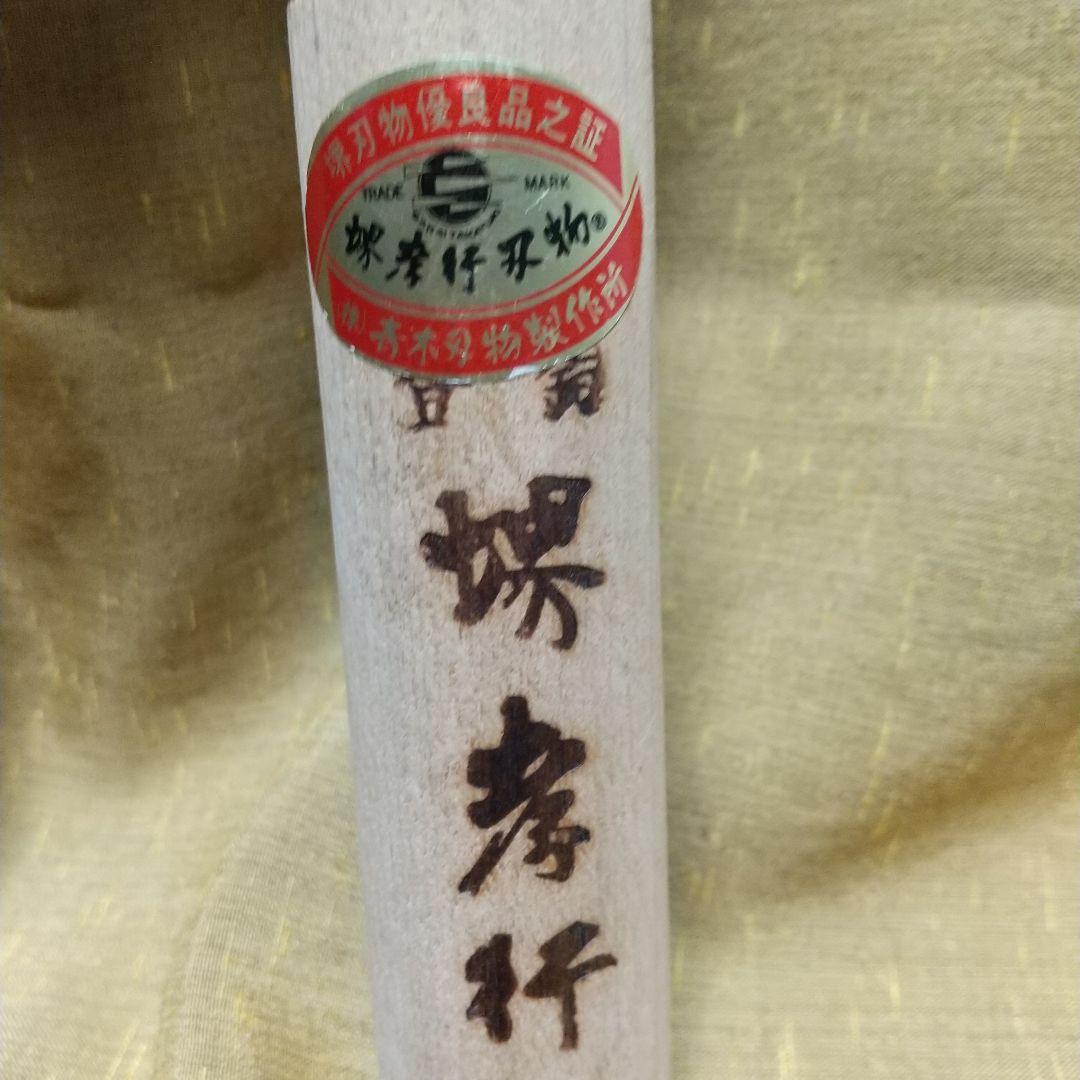 堺刃物優良品之証
TRADE MARK
堺孝行刃物®
(株)青木刃物製作所
堺孝行